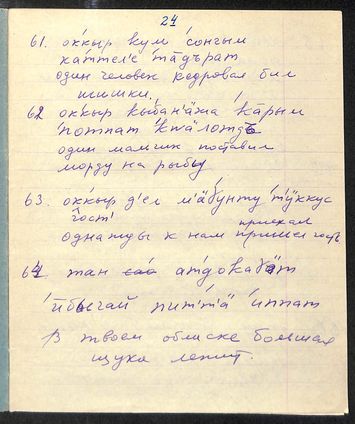 24
61. оккыр кум 'сонгым
ка́ттел'е та̄дърат
один человек кедровая бил
шишки.
62 оккыр кы̄бан'а̄жа ка̄рым
'потпат 'кжа̄лотдъ
один мальчик поставил
морду на рыбы
63. оккыр д'ел м'а̄ɣунту 'тӱккус
гост'
приехал
однажды к нам пришел гость
64 тан атдокаɣат
питт'а̄ 'иппат
В твоем обласке большая
щука лежит.